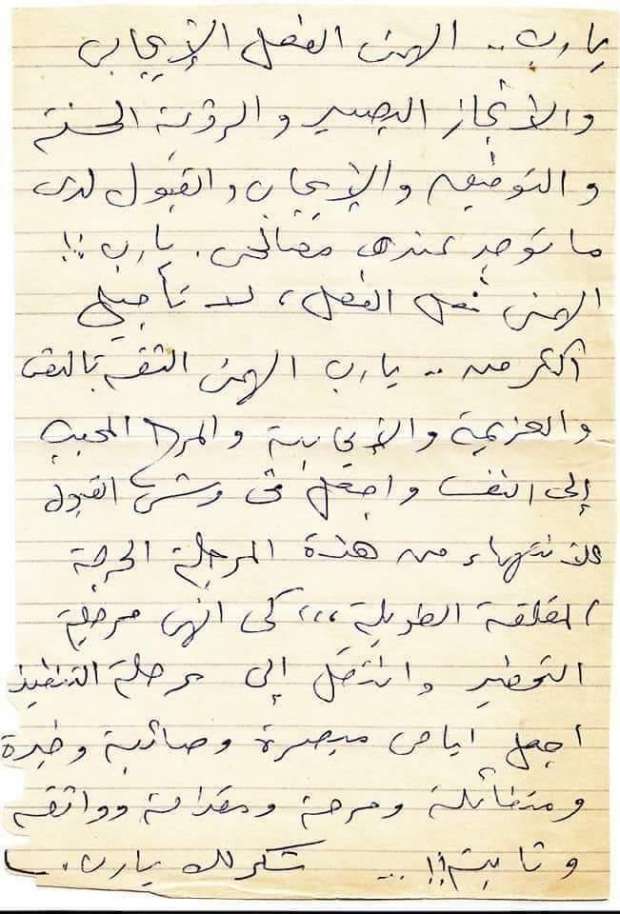 يارب.. الهمنى الفعل الإيجابى
والانجاز البصير والرؤية الحسنة
والتوفيق والإيجاب والقبول لدى
ما توجد عندهم مصالحى. يارب !!
الهمنى فعل الفعل، لا تأجيلى
أكثر من .. يارب الهمنى الثقة بالنفس
والعزيمة والإيجابية والمرح المحبب
إلى النفس واجعل فى القبول
للانتهاء من هذة المرحلة الحرجة
المقلقة الطويلة ،،، كى انهى مرحلة
التحضير وانتقل إلى مرحلة التنفيذ
اجعل ايامى مبصرة وصائبة وخيرة
ومتفائلة ومرحة ومقدامة وواثقة
وثابتة !! .. شكر لك يارب.